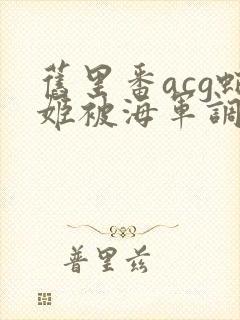 舊里番acg蛇
姬被海軍調
普里兹